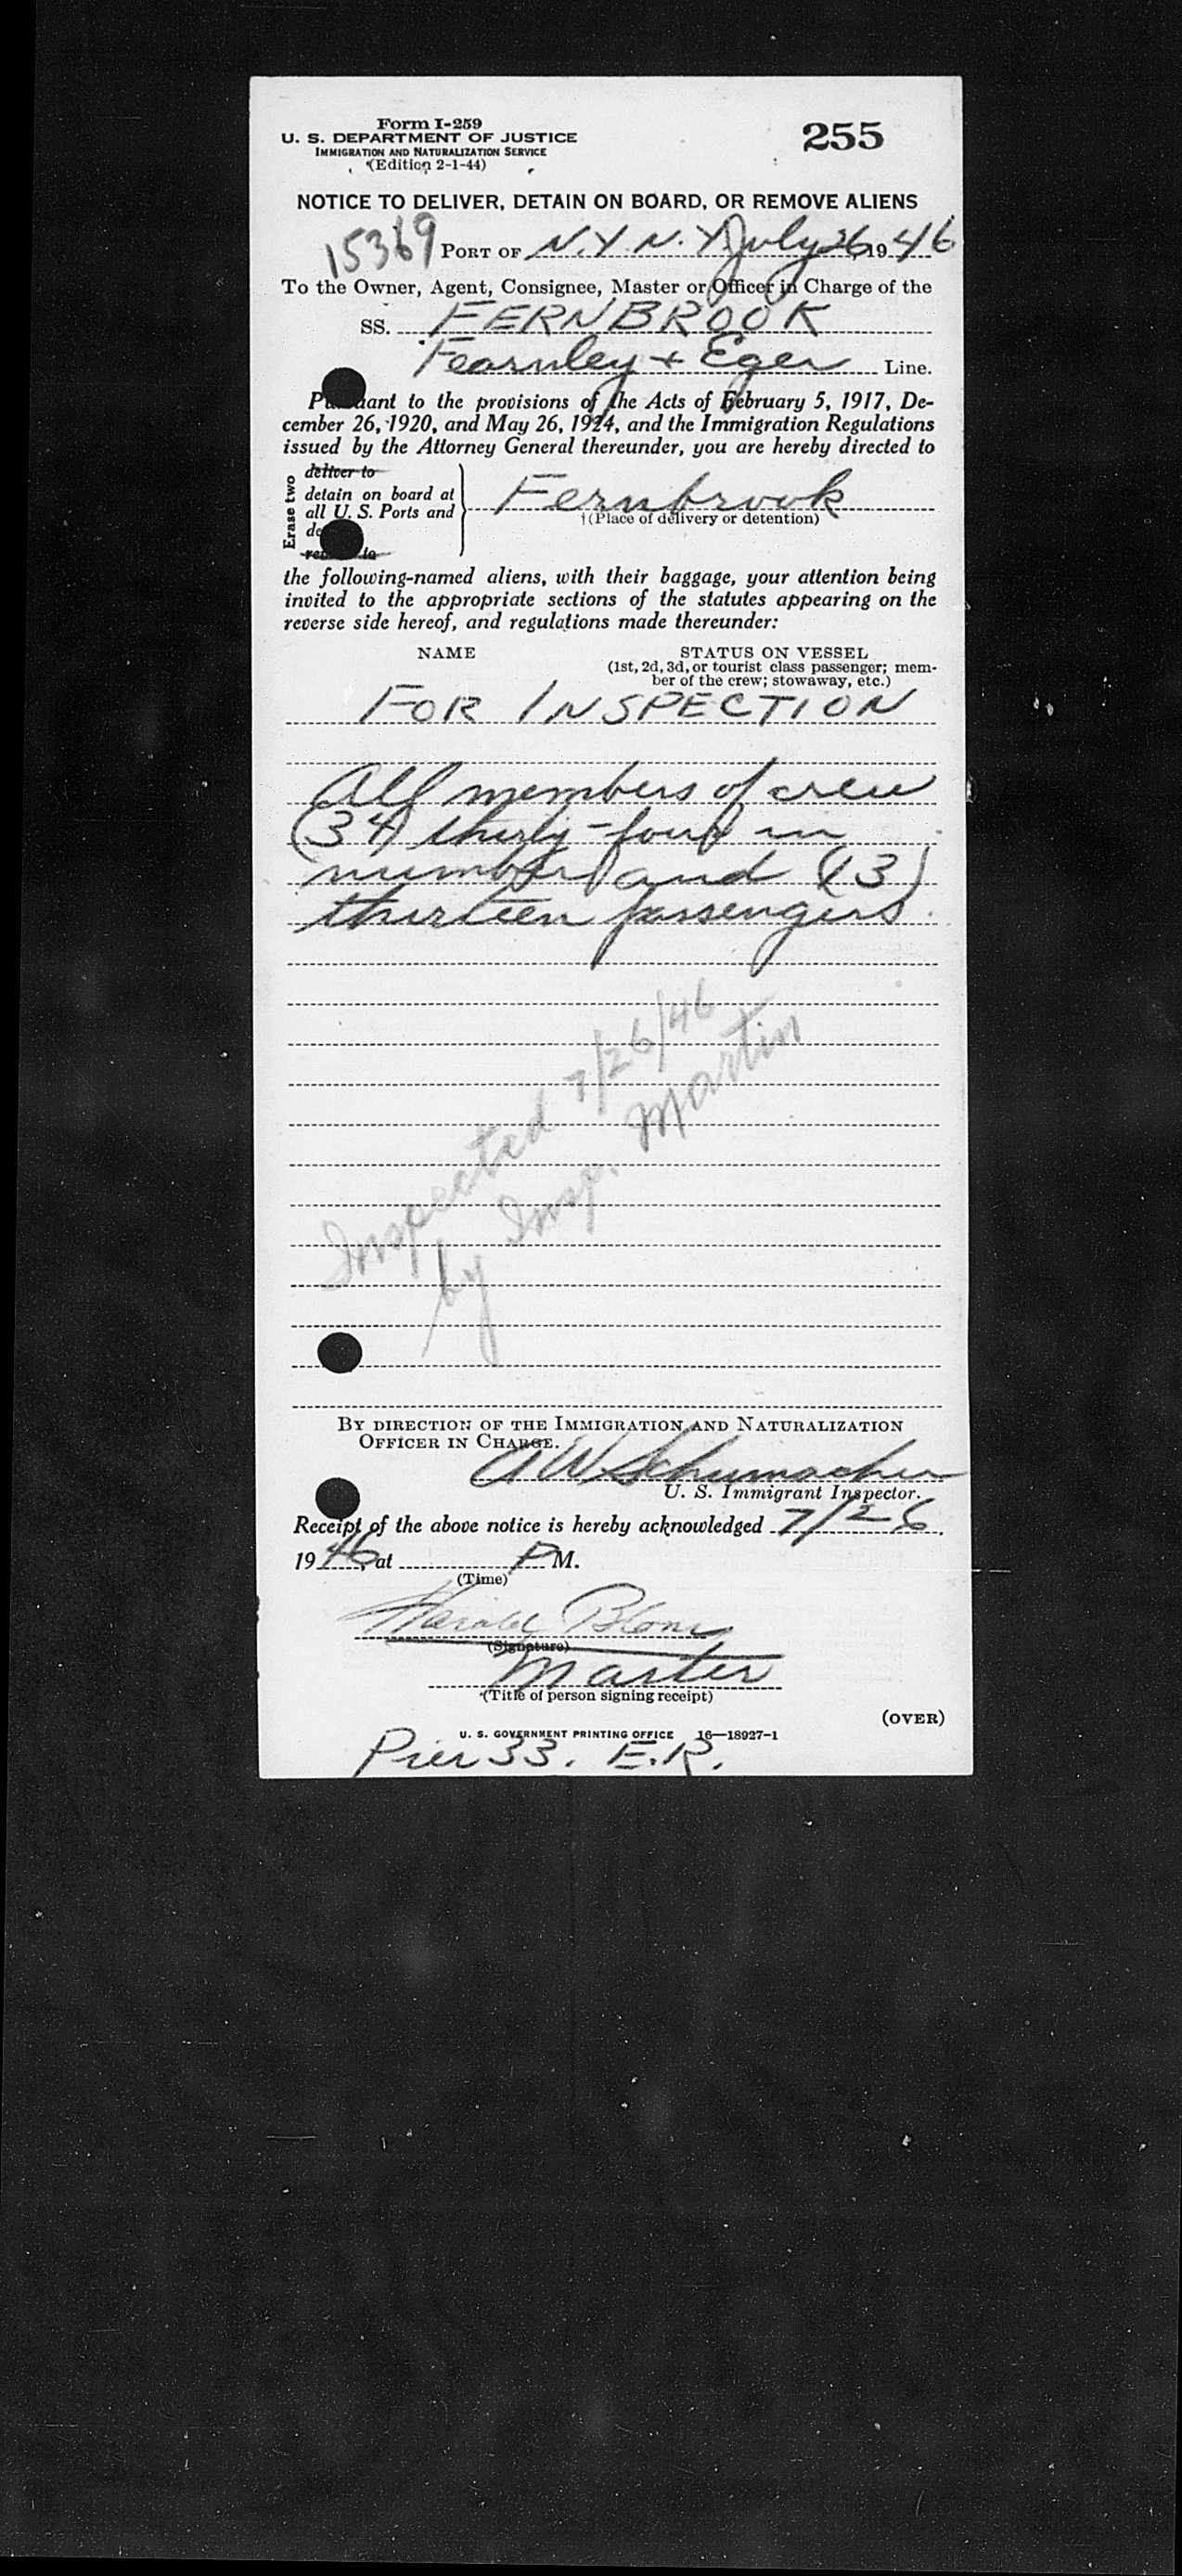 Form I-259
U. S. DEPARTMENT OF JUSTICE
IMMIGRATION AND NATURALIZATION SERVICE
(Edition 2-1-44)
255
NOTICE TO DELIVER, DETAIN ON BOARD, OR REMOVE ALIENS
15369 PORT OF N.Y. N.Y. July 26, 1946
To the Owner, Agent, Consignee, Master or Officer in Charge of the
SS. FERNBROOK
Fearnley + Eger Line.
Pursuant to the provisions of the Acts of February 5, 1917, De-
cember 26, 1920, and May 26, 1924, and the Immigration Regulations
issued by the Attorney General thereunder, you are hereby directed to
Erase two
deliver to
detain on board at
all U. S. Ports and
Fernbrook
†(Place of delivery or detention)
the following-named aliens, with their baggage, your attention being
invited to the appropriate sections of the statutes appearing on the
reverse side hereof, and regulations made thereunder:
NAME STATUS ON VESSEL
(1st, 2d, 3d, or tourist class passenger; mem-
ber of the crew; stowaway, etc.)
FOR INSPECTION
All members of crew
(34) thirty-four in
number and (13)
thirteen passengers.
Inspected 7/26/46
by Insp. Martin
BY DIRECTION OF THE IMMIGRATION AND NATURALIZATION
OFFICER IN CHARGE.
A W Schumacher
U. S. Immigrant Inspector.
Receipt of the above notice is hereby acknowledged 7/26,
1946, at P M.
(Time)
Harald Blom
(Signature)
Master
(Title of person signing receipt)
(OVER)
U. S. GOVERNMENT PRINTING OFFICE 16—18927-1
Pier 33. E.R.